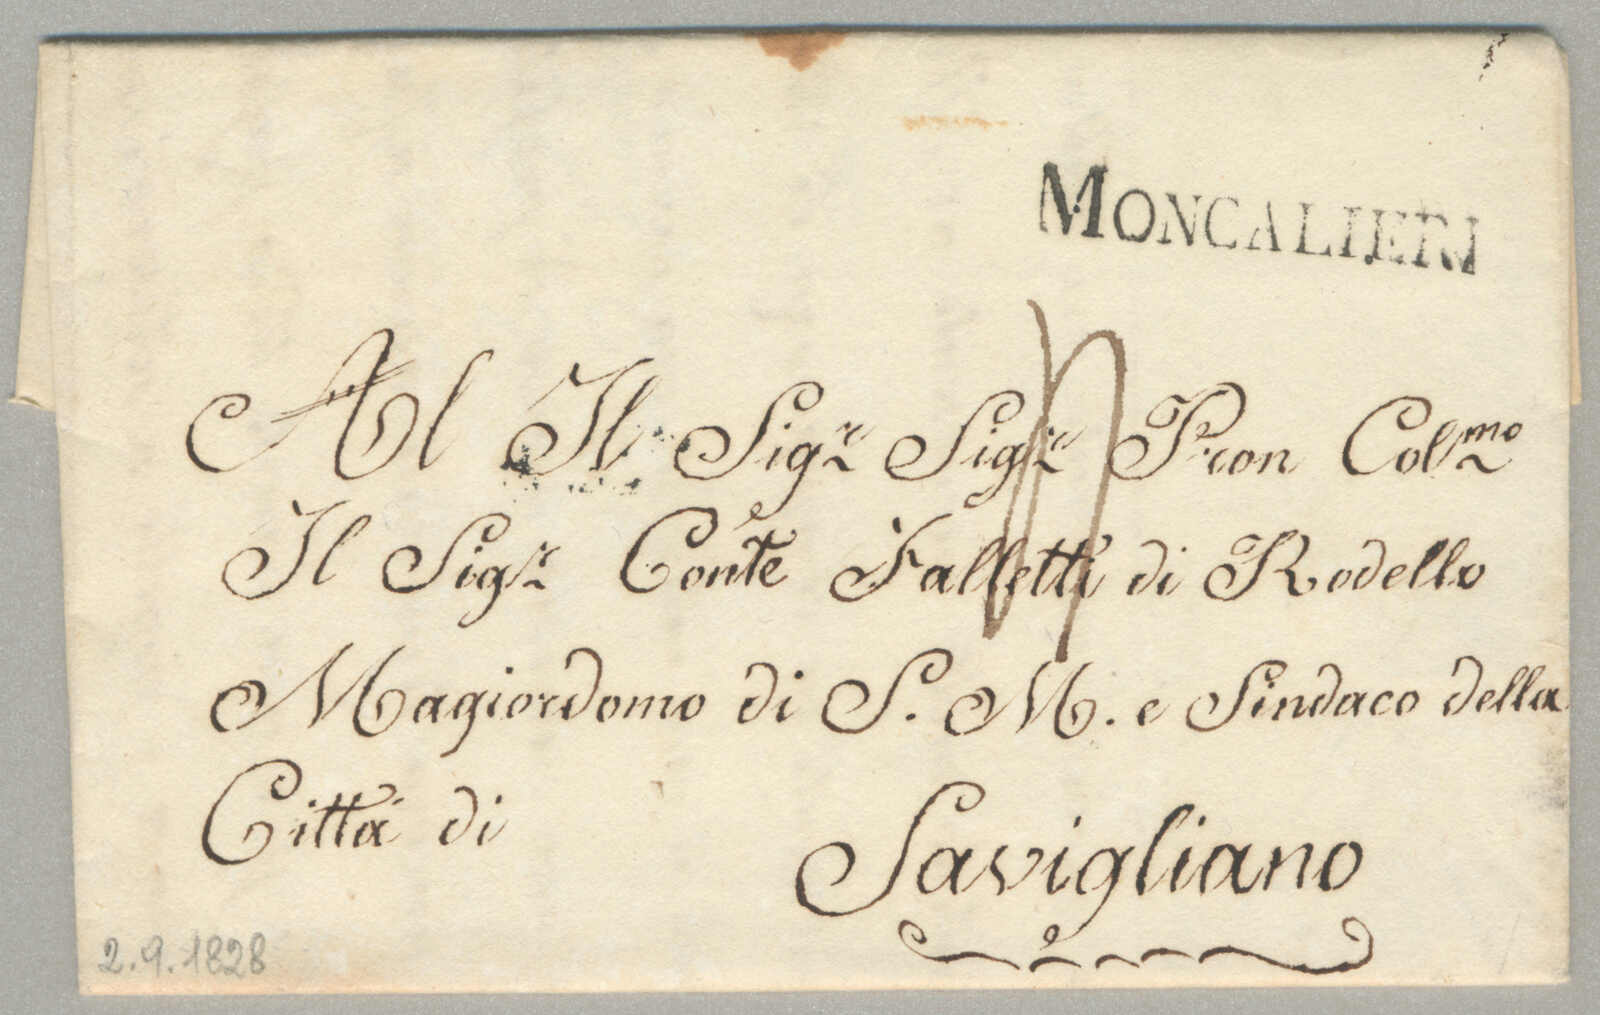 MONCALIERI
Al Il Sigr Sigr Pron Colmo
Il Sigr Conte Falletti di Rodello
Magiordomo di S. M. e Sindaco della
Città di
Savigliano
2.9.1828